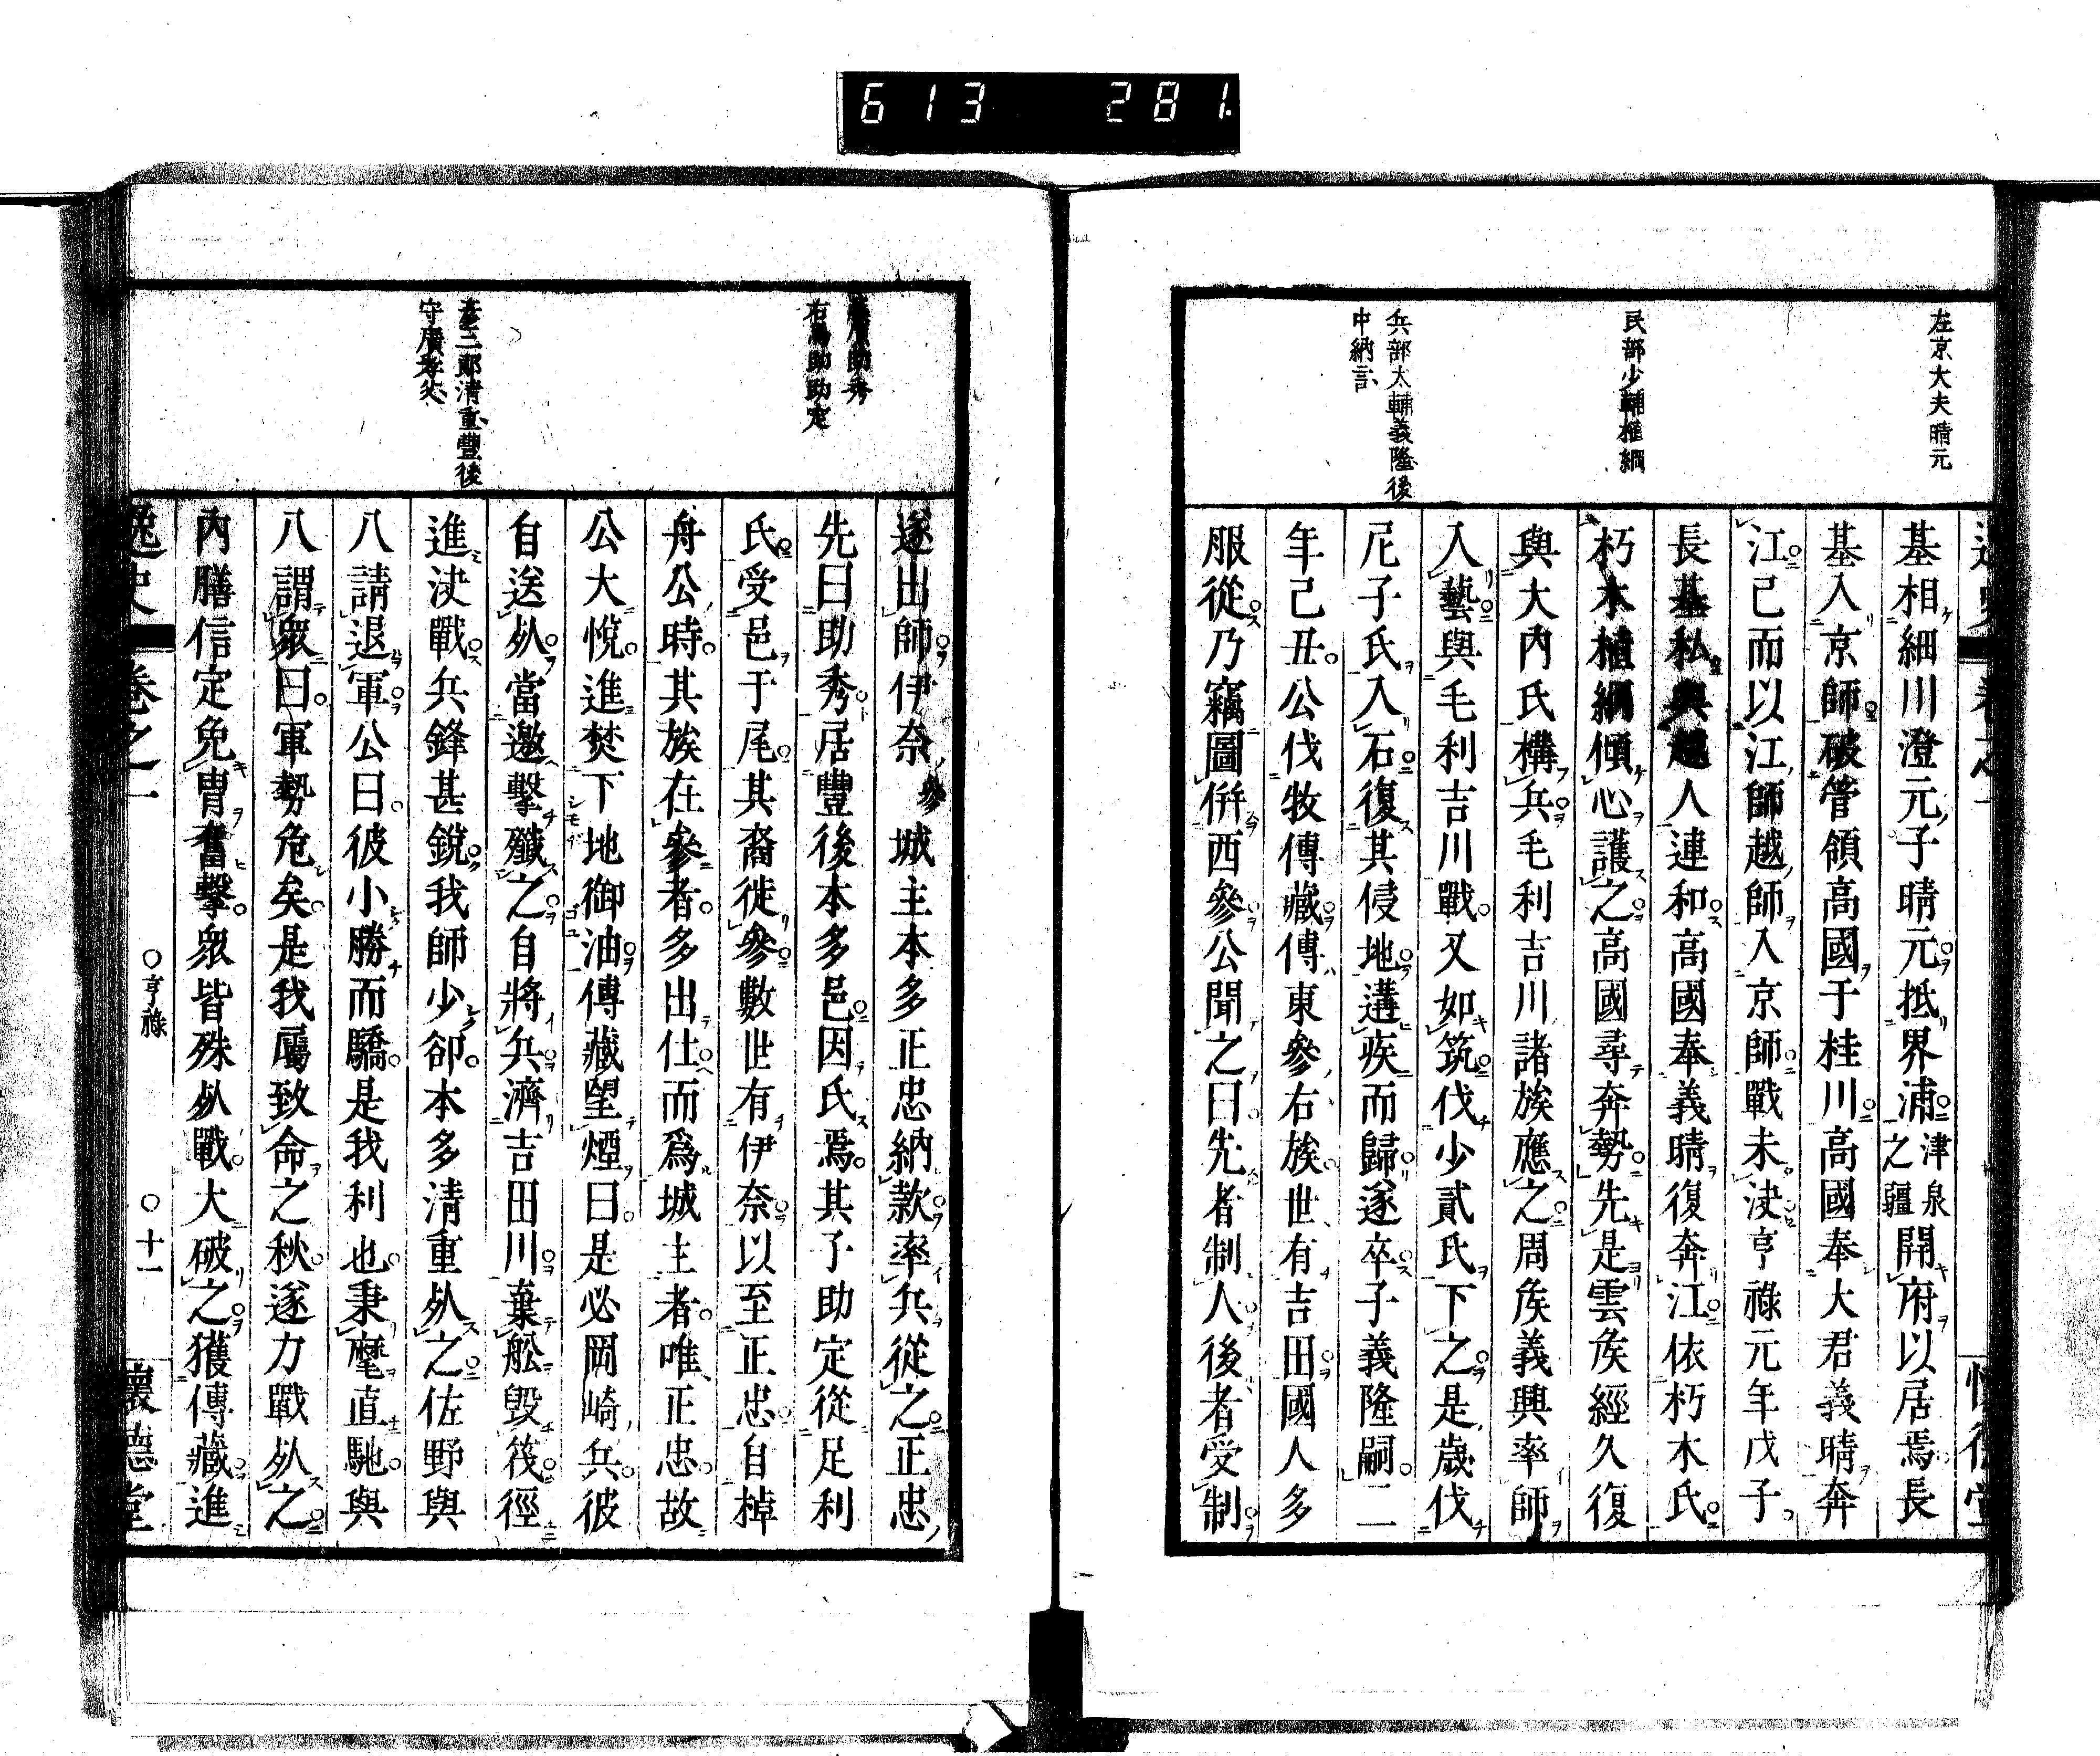 613 281
左京大夫晴元
民部少輔植綱
兵部太輔義隆後
中納言
基相細川澄元子晴元抵界浦津泉之疆開府以居焉長
基入京師破管領高國于桂川高國奉大君義晴奔
江已而以江師越師入京師戰未決亨祿元年戊子
長基私與越人連和高國奉義晴復奔江依朽木氏
朽木植綱傾心護之高國尋奔勢先是雲矦經久復
與大內氏構兵毛利吉川諸族應之周矦義興率師
入藝與毛利吉川戰又如筑伐少貳氏下之是歲伐
尼子氏入石復其侵地遘疾而歸遂卒子義隆嗣二
年己丑公伐牧傳藏傳東參右族世有吉田國人多
服從乃竊圖併西參公聞之曰先者制人後者受制
右馬助助定
彥三郎清重豐後
守廣孝父
遂出師伊奈參城主本多正忠納款率兵從之正忠
先曰助秀居豐後本多邑因氏焉其子助定從足利
氏受邑于尾其裔徙參數世有伊奈以至正忠自棹
舟公時其族在參者多出仕而爲城主者唯正忠故
公大悅進焚下地御油傳藏望煙曰是必岡崎兵彼
自送死當邀擊殲之自將兵濟吉田川棄舩毀筏徑
進決戰兵鋒甚銳我師少卻本多清重死之佐野與
八請退軍公曰彼小勝而驕是我利也秉麾直馳與
八謂眾曰軍勢危矣是我屬致命之秋遂力戰死之
內膳信定免冑奮擊眾皆殊死戰大破之獲傳藏進
逸史 卷之一 ○亨祿 ○十一 懷德堂